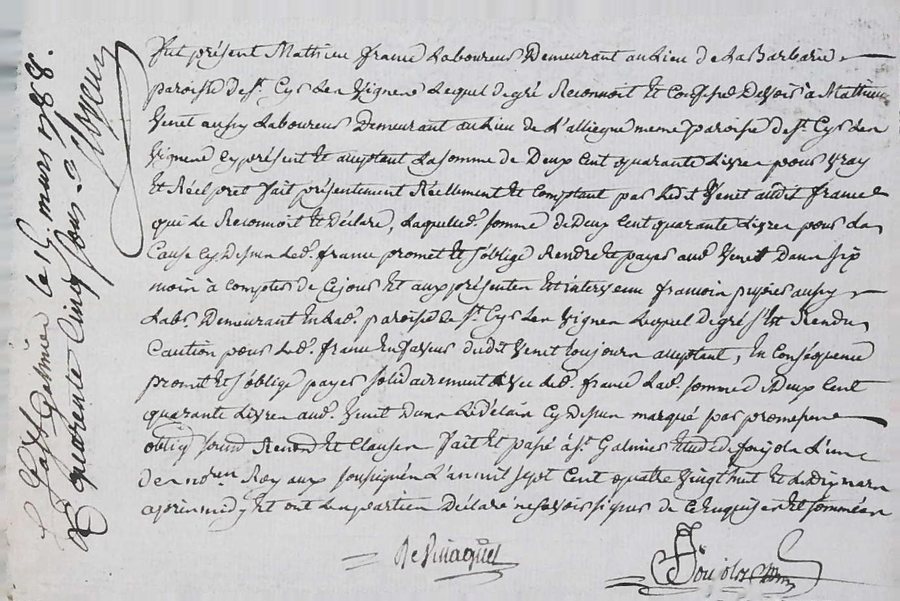 Fut présent Mathieu france Laboureur Demeurant au Lieu de La Barbarie
paroisse de st. Cyr Les Vignes Lequel de gré Reconnoit Et Confesse Devoir à Mathieu
Venet aussy Laboureur Demeurant au Lieu de L'alliegue meme paroisse de st. Cyr Les
Vignes cy présent Et acceptant La somme de Deux Cent quarante Livres pour vray
Et Réel pret fait présentement Réellement Et Comptant par Ledit Venet audit france
qui Le Reconnoit Et Déclare, Laquelle d. somme de Deux Cent quarante Livres pour La
Cause cy Dessus Led. france promet Et s'oblige Rendre Et payer aud. Venet dans six
mois à compter de Ce jour Et aux présentes Est intervenu francois aussy
Lab. Demeurant En Lad. paroisse de st. Cyr Les Vignes Lequel de gré s'Est Rendu
Caution pour Led. france En faveur dudit Venet toujours acceptant, En Conséquence
promet Et s'oblige payer solidairement avec Led. france Lad. somme de Deux Cent
quarante Livres aud. Venet dans Le délais cy Dessus marqué par promesses
oblig. soum. Renon. Et Clauses fait Et passé à st. Galmier Etude de foujols L'un
des no.res Roy. aux soussignés L'an mil sept Cent quatre vingt huit Et Le Dix mars
après midy Et ont Les parties Déclaré ne savoir signer de Ce Enquises Et sommées
foujols
à st. Galmier le 15 mars 1788.
R. quarente cinq sous